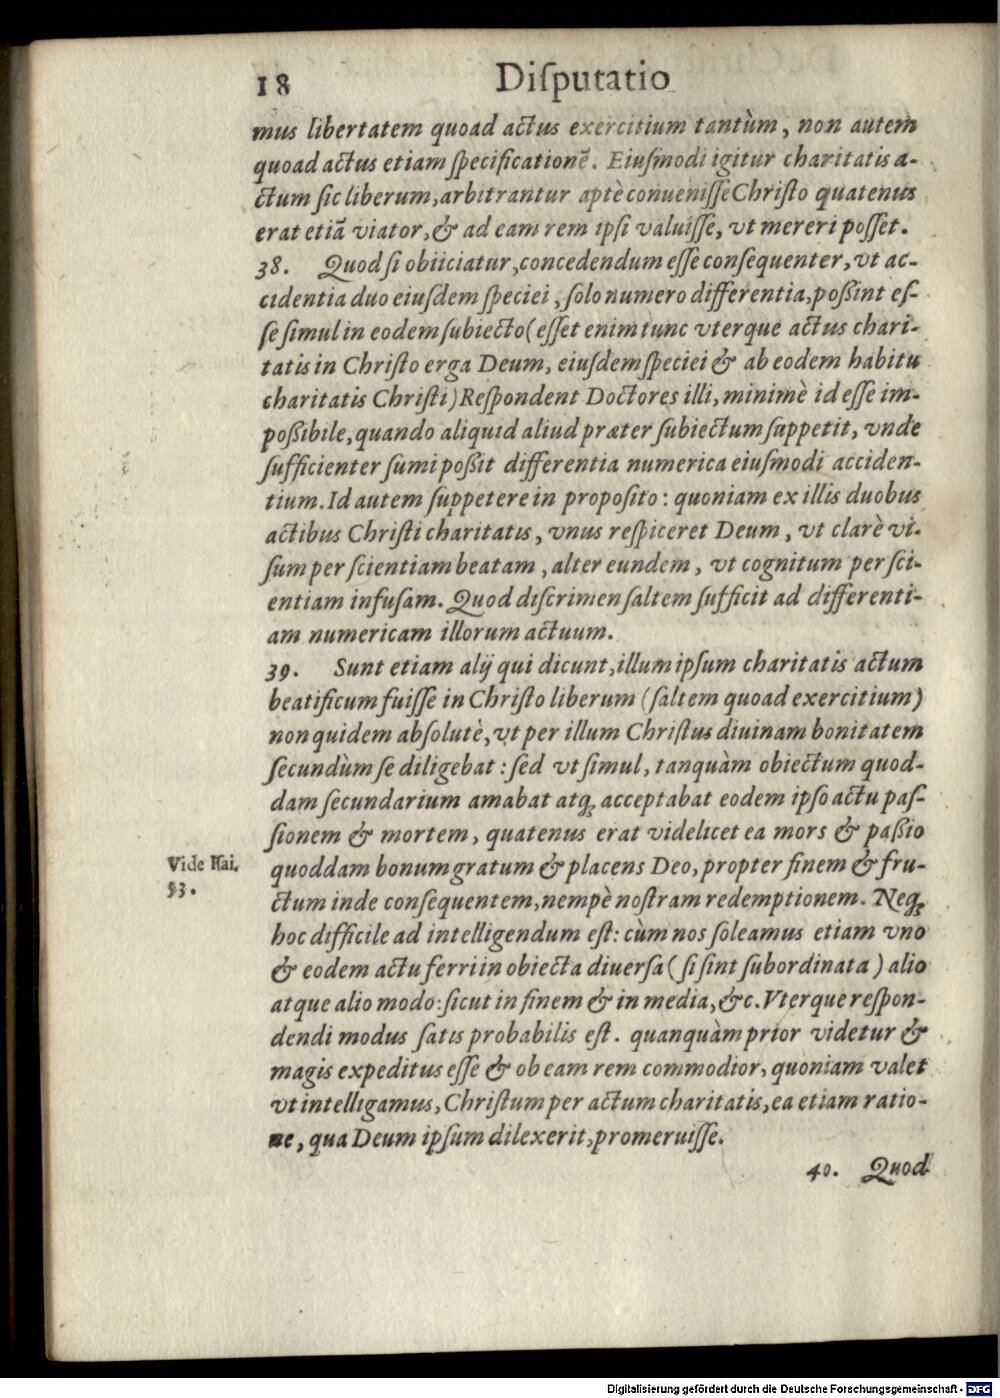 18 Diſputatio
mus libertatem quoad actus exercitium tantùm, non autem
quoad actus etiam ſpecificationē. Eiuſmodi igitur charitatis a-
ctum ſic liberum, arbitrantur aptè conueniſſe Chriſto quatenus
erat etiā viator, & ad eam rem ipſi valuiſſe, vt mereri poſſet.
38. Quod ſi obiiciatur, concedendum eſſe conſequenter, vt ac-
cidentia duo eiuſdem ſpeciei, ſolo numero differentia, poßint eſ-
ſe ſimul in eodem ſubiecto (eſſet enim tunc vterque actus chari-
tatis in Chriſto erga Deum, eiuſdem ſpeciei & ab eodem habitu
charitatis Chriſti) Reſpondent Doctores illi, minimè id eſſe im-
poßibile, quando aliquid aliud præter ſubiectum ſuppetit, vnde
ſufficienter ſumi poßit differentia numerica eiuſmodi acciden-
tium. Id autem ſuppetere in propoſito: quoniam ex illis duobus
actibus Chriſti charitatis, vnus reſpiceret Deum, vt clarè vi-
ſum per ſcientiam beatam, alter eundem, vt cognitum per ſci-
entiam infuſam. Quod diſcrimen ſaltem ſufficit ad differenti-
am numericam illorum actuum.
39. Sunt etiam alij qui dicunt, illum ipſum charitatis actum
beatificum fuiſſe in Chriſto liberum (ſaltem quoad exercitium)
non quidem abſolutè, vt per illum Chriſtus diuinam bonitatem
ſecundùm ſe diligebat: ſed vt ſimul, tanquàm obiectum quod-
dam ſecundarium amabat atq; acceptabat eodem ipſo actu paſ-
ſionem & mortem, quatenus erat videlicet ea mors & paßio
quoddam bonum gratum & placens Deo, propter finem & fru-
ctum inde conſequentem, nempè noſtram redemptionem. Neq;
hoc difficile ad intelligendum eſt: cùm nos ſoleamus etiam vno
& eodem actu ferri in obiecta diuerſa (ſi ſint ſubordinata) alio
atque alio modo: ſicut in finem & in media, &c. Vterque reſpon-
dendi modus ſatis probabilis eſt. quanquàm prior videtur &
magis expeditus eſſe & ob eam rem commodior, quoniam valet
vt intelligamus, Chriſtum per actum charitatis, ea etiam ratio-
ne, qua Deum ipſum dilexerit, promeruiſſe.
40. Quod
Vide Iſai.
53.
Digitalisierung gefördert durch die Deutsche Forschungsgemeinschaft - DFG